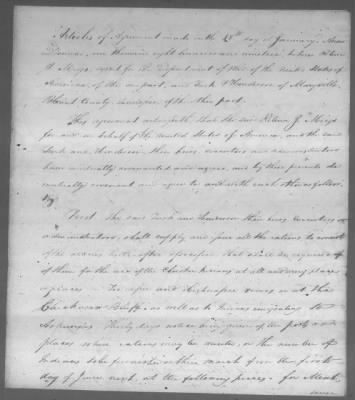 Articles of Agreement made on the 28th day of January, Anno
Domini, one thousand eight hundred and nineteen, between Return
J. Meigs, agent for the department of War of the United States of
America, of the one part, and Tunk & Henderson of Maryville,
Blount County, of the other part.
This agreement witnesseth that the said Return J. Meigs
for and on behalf of the United States of America, and the said
and Henderson their heirs, executors and administrators
have mutually covenanted and agreed, and by these presents do
mutually covenant and agree to and with each other as follows,
Viz
First. The said and Henderson their heirs executors or
administrators, shall supply and issue all the rations to consist
of the articles herein after specified that shall be required of
of them for the use of the Cherokees at all and every place
or places the and Highwassee rivers or at the
Chickasaw Bluffs as well as to Indians emigrating to
Arkansas. Thirty days notice being given of the posts and
places where rations may be wanted, or the number of
Indians to be furnished on their march from the first
day of June next, at the following prices. for Meat